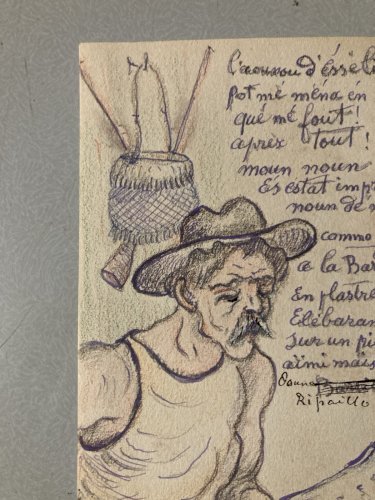 l'amour d'éssé li
pot mé ména en
qué mé fout!
après tout!
moun noun
Es estat imp
noun dé
commo
a la Bar
En plastre
Elébaran
sur un pi
aïmi maïs
Ripaillo